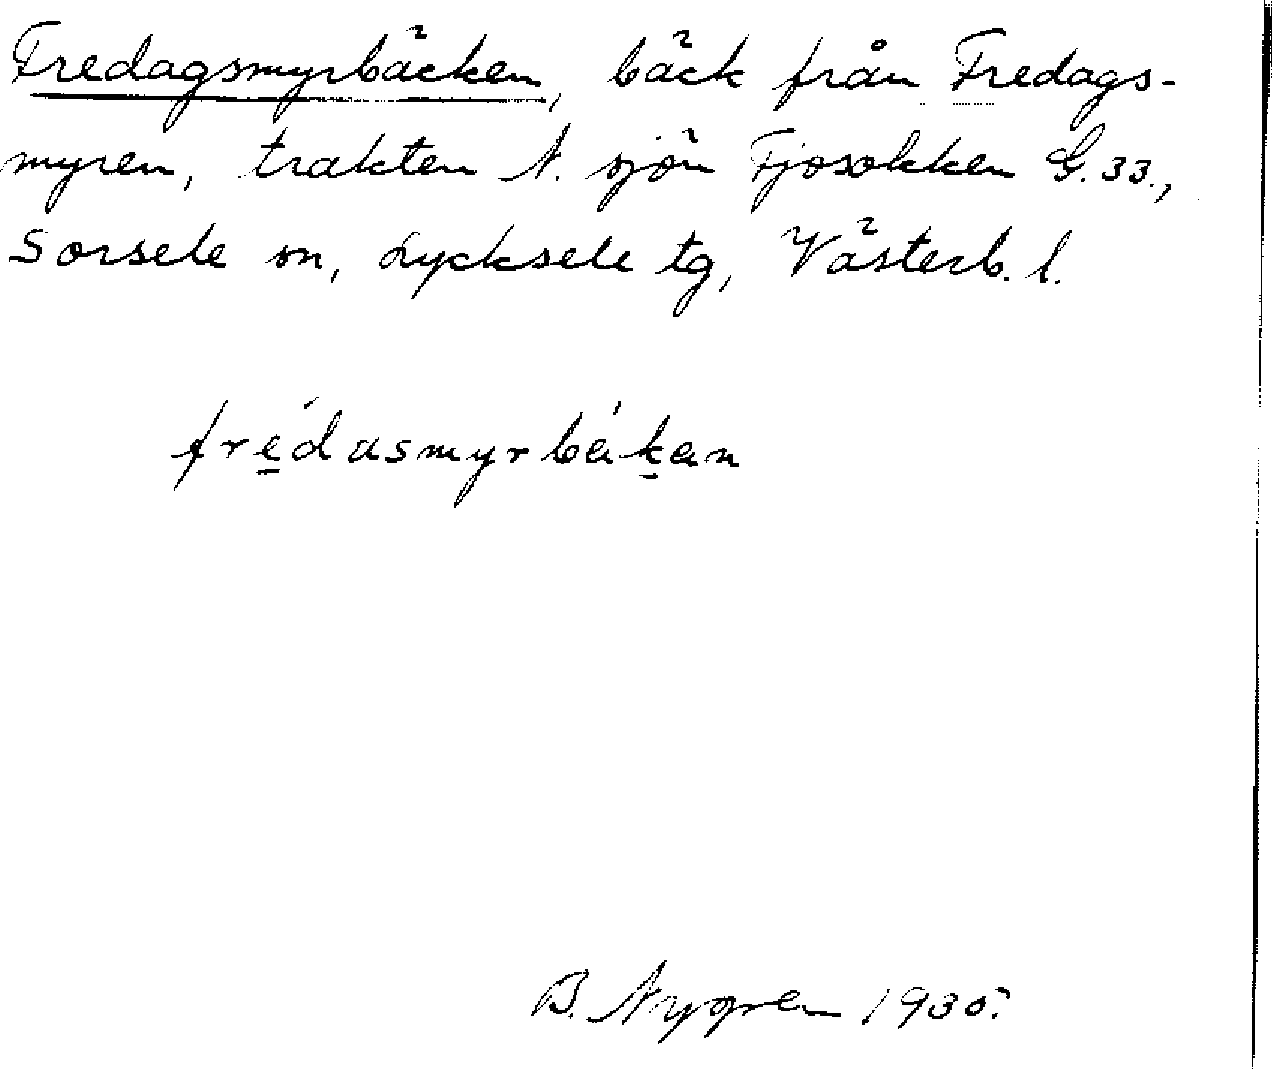 Fredagsmyrbäcken, bäck från Fredags-
myren, trakten N. sjön Fjosokken G. 33.,
Sorsele sn, Lycksele tg, Västerb. l.
frédasmyrbäkän
B. Nygren 1930.